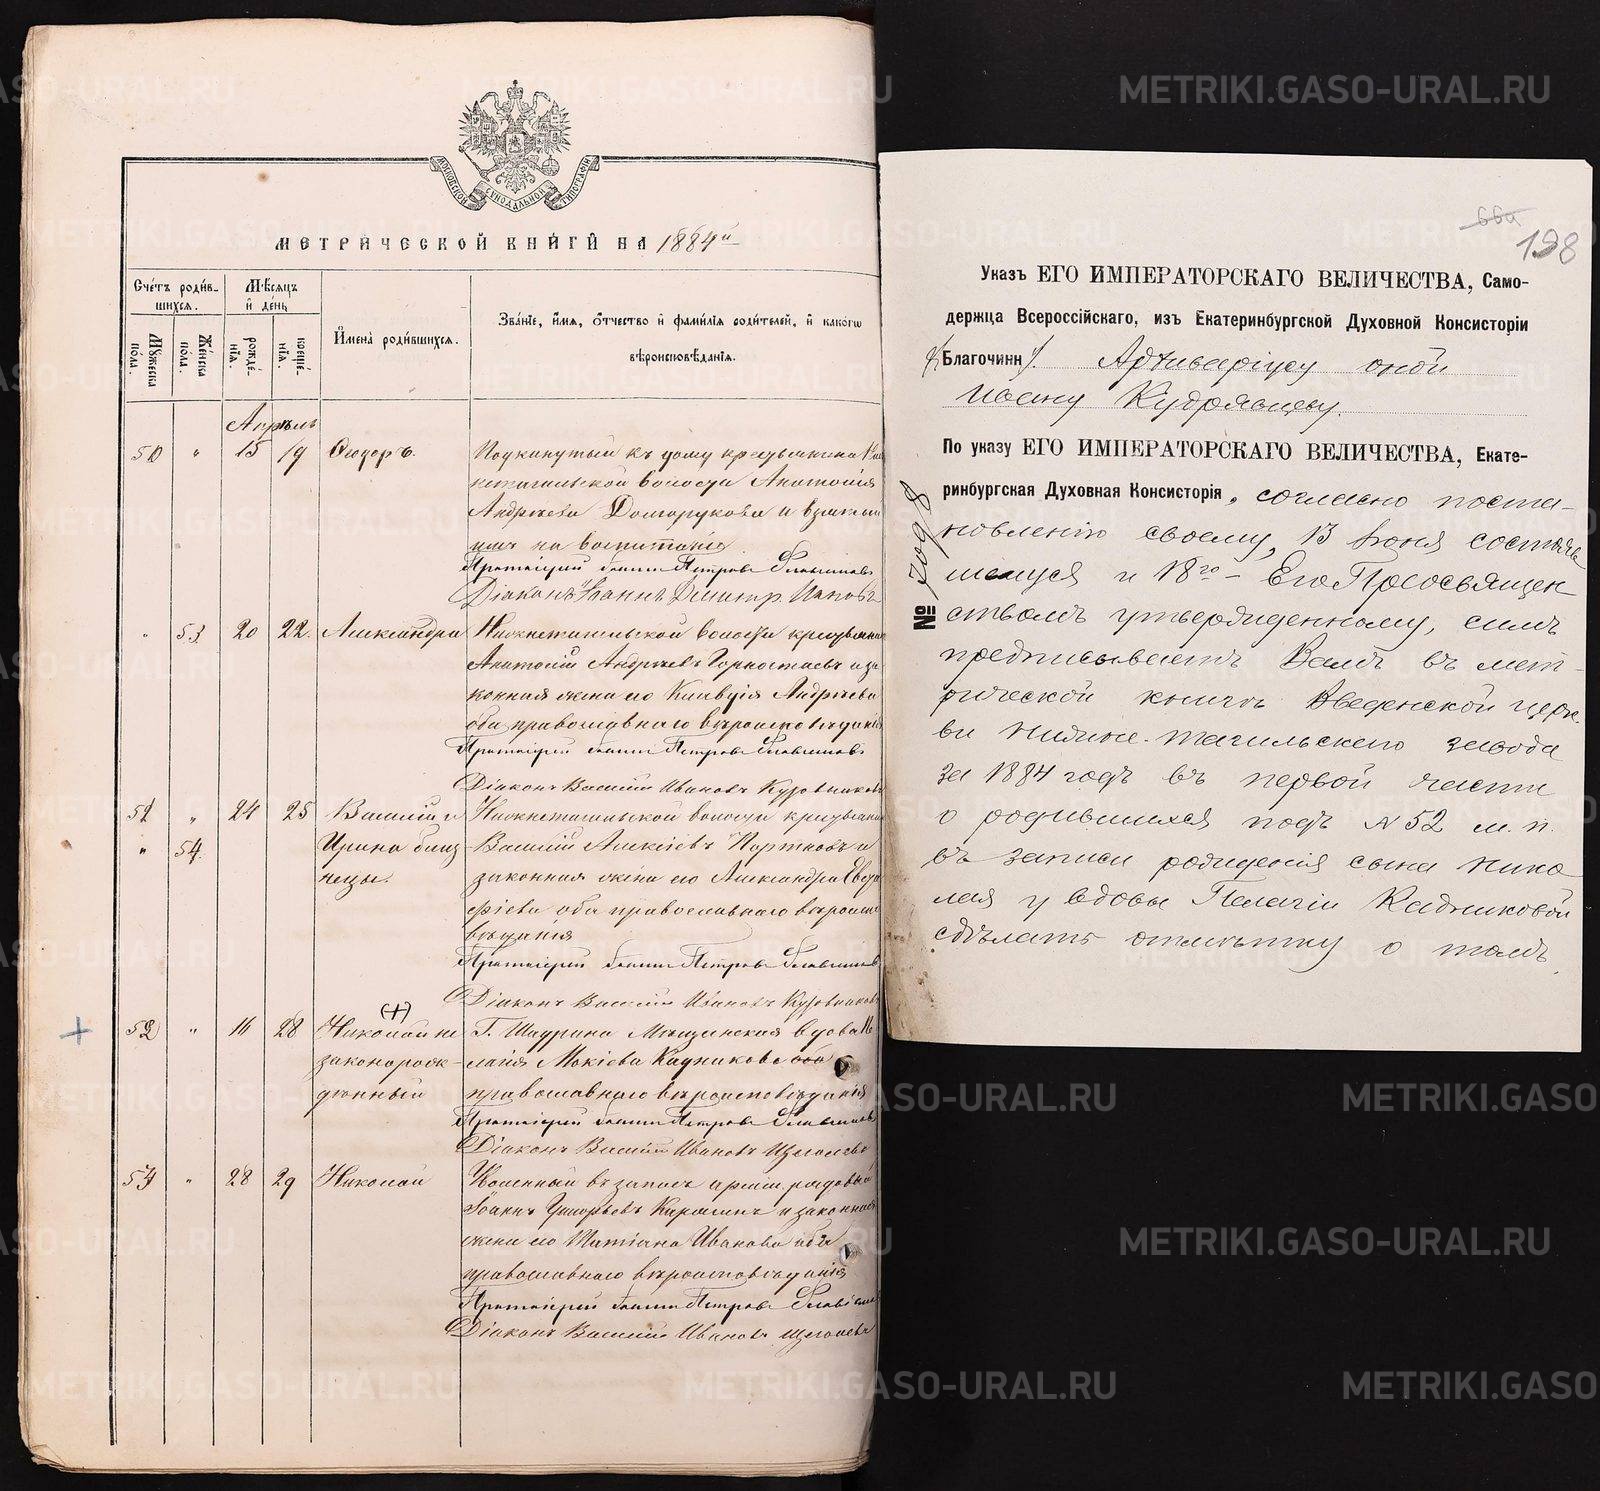 МОСКОВСКОЙ СѴНОДАЛЬНОЙ ТИПОГРАФІИ
МЕТРИЧЕСКОЙ КНИГИ НА 1884й
Счетъ родившихся.
Мѣсяцъ и день
Мужеска пола.
Женска пола.
рожденія.
крещенія.
Имена родившихся.
Званіе, имя, отчество и фамилія родителей, и какогѡ
вѣроисповѣданія.
Апрѣль
50 " 15 19 Ѳедоръ. Подкинутый къ дому крестьянина Ниж
нетагильской волости Анатолія
Андрѣева Долгорукова и взятый
имъ на воспитаніе.
Протоіерей Іоаннъ Петровъ
Діаконъ Іоаннъ Димитр. Поповъ
" 53. 20 22. Александра Нижнетагильской волости крестьянинъ
Анатолій Андрѣевъ Горностаевъ и за
конная жена его Клавдія Андрѣева
оба православнаго вѣроисповѣданія
Протоіерей Іоаннъ Петровъ
Діаконъ Василій Ивановъ
51 " 24 25 Василій и Нижнетагильской волости крестьянинъ
" 54. Ирина близ Василій Алексіевъ Портновъ и
нецы. законная жена его Александра Евста
фіева оба православнаго вѣроиспо
вѣданія
Протоіерей Іоаннъ Петровъ
Діаконъ Василій Ивановъ
(+)
+ 52 " 16 28 Николай не Г. Шадрина Мѣщанская вдова Пе
законорож- лагія Мокіева Кадникова оба
денный православнаго вѣроисповѣданія
Протоіерей Іоаннъ Петровъ
Діаконъ Василій Ивановъ Щеголевъ
53 " 28 29 Николай Уволенный въ запасъ арміи рядовый
Іоаннъ Григорьевъ и законная
жена его Татіана Иванова оба
православнаго вѣроисповѣданія
Протоіерей Іоаннъ Петровъ
Діаконъ Василій Ивановъ Щеголевъ
66а
198
Указъ ЕГО ИМПЕРАТОРСКАГО ВЕЛИЧЕСТВА, Само-
держца Всероссійскаго, изъ Екатеринбургской Духовной Консисторіи
Благочинн Архиваріусу оной
Ивану Кудрявцеву.
По указу ЕГО ИМПЕРАТОРСКАГО ВЕЛИЧЕСТВА, Екате-
ринбургская Духовная Консисторія, согласно поста-
новленію своему, 13 Іюня состояв
шемуся и 18го - Его Преосвящен
ствомъ утвержденному, симъ
предписываетъ Вамъ въ мет-
рической книгѣ Введенской церк
ви Нижне-Тагильскаго завода
за 1884 годъ въ первой части
о родившихся подъ №52 м. п.
въ записи рожденія сына Нико
лая у вдовы Пелагіи Кадниковой
сдѣлать отмѣтку о томъ
№ 7078
METRIKI.GASO-URAL.RU